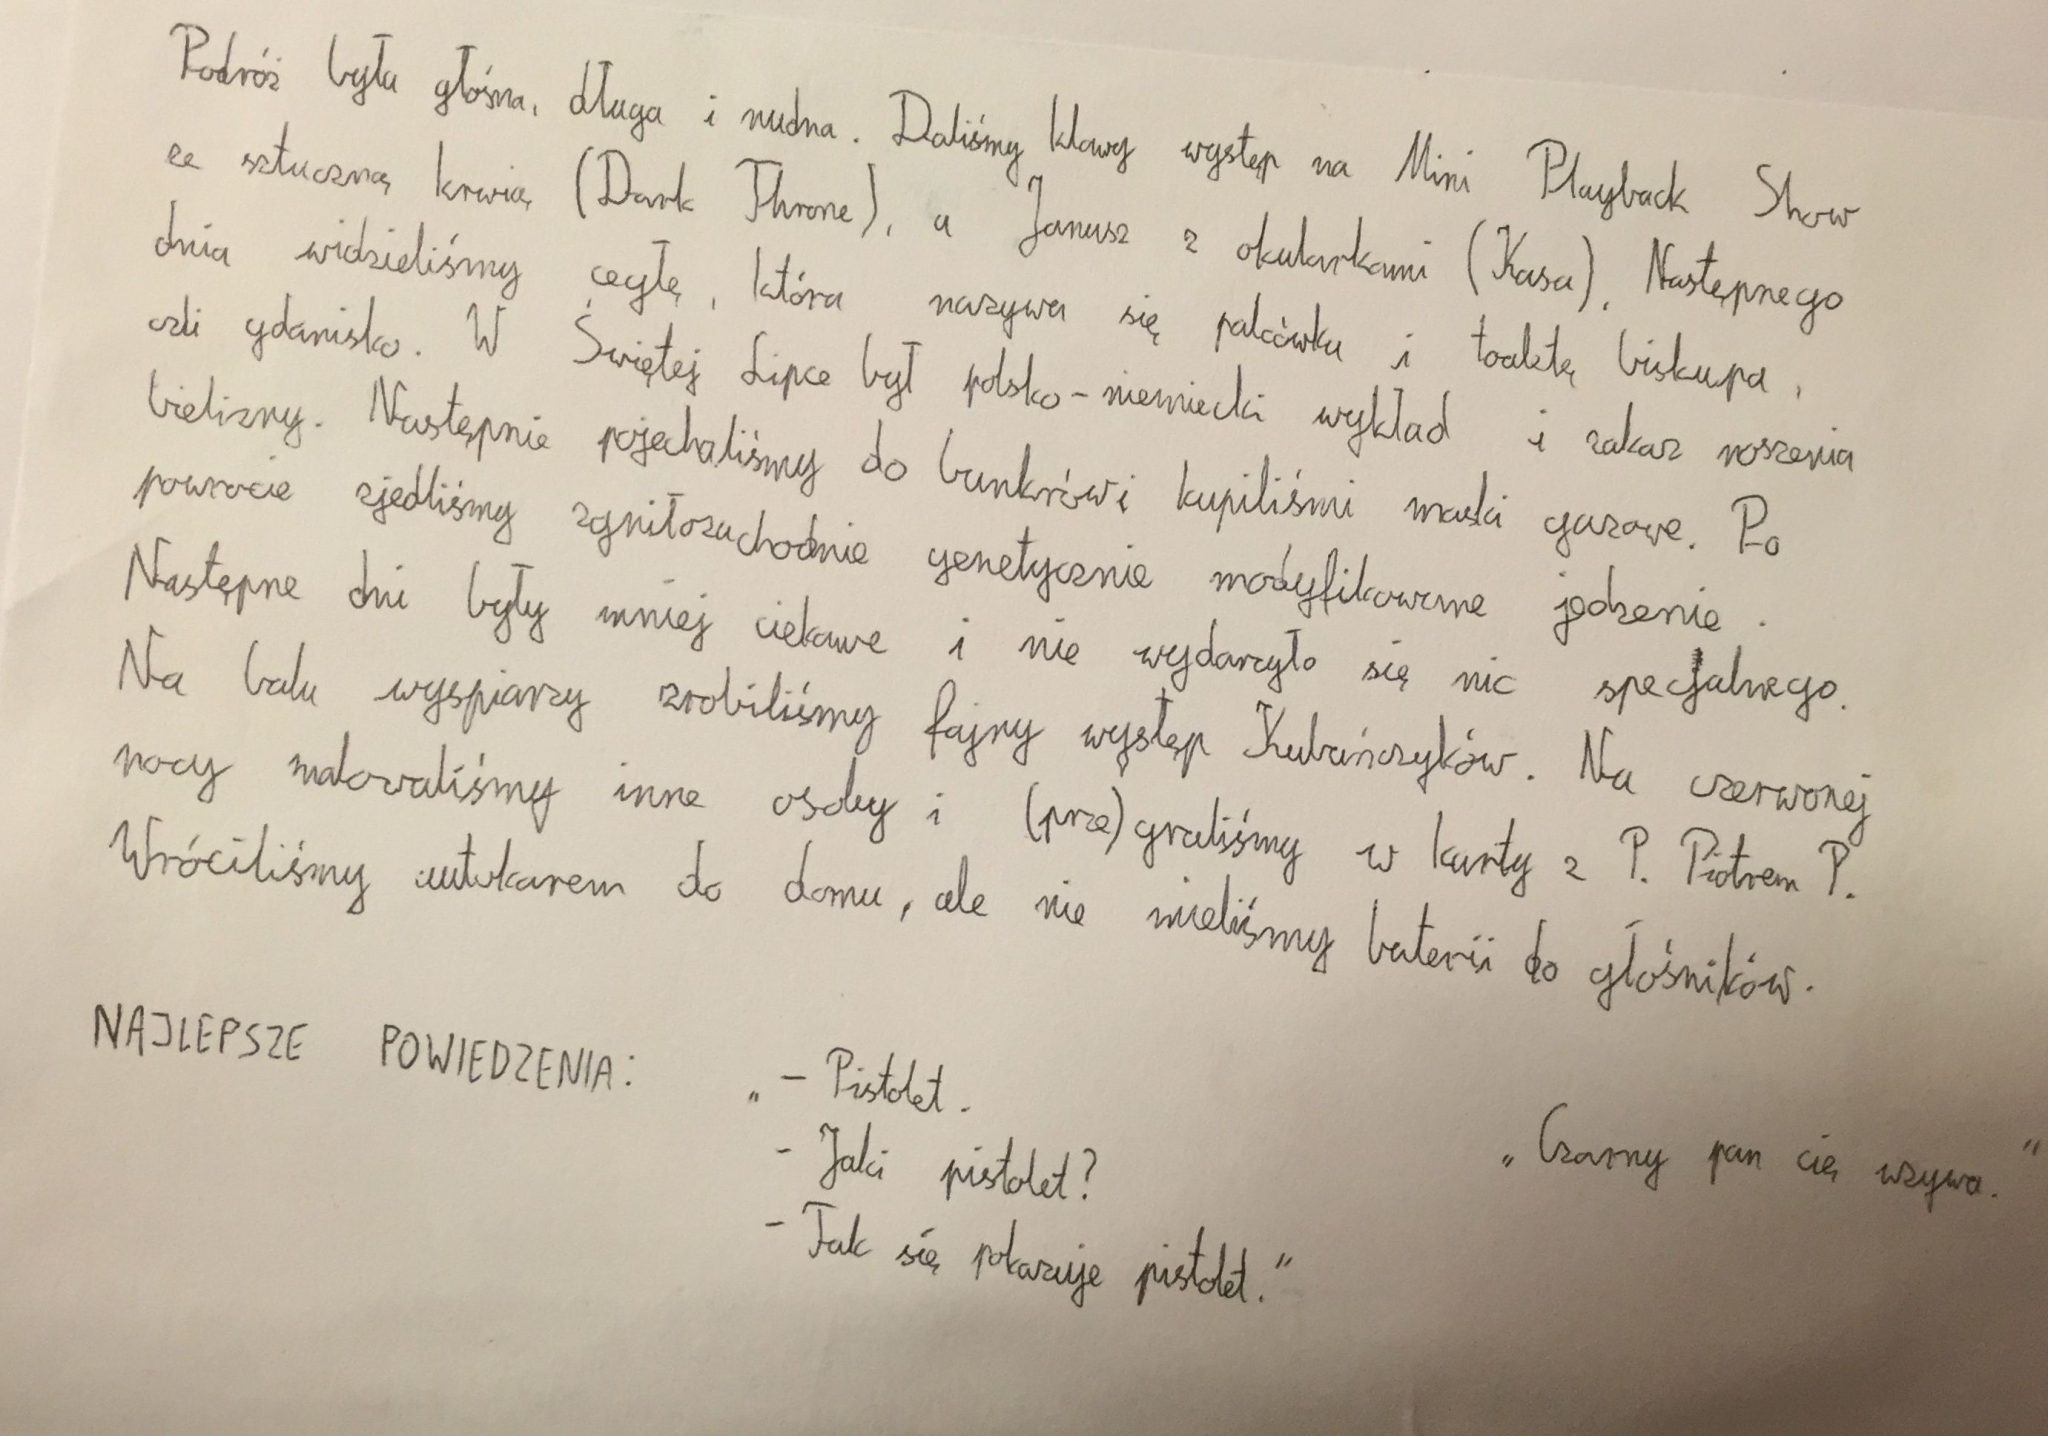 Podróż była głośna, długa i nudna. Daliśmy klawy występ na Mini Playback Show
ze sztuczną krwią (Dark Throne), a Janusz z okularkami (Kasa). Następnego
dnia widzieliśmy cegłę, która nazywa się palcówka i toaletę biskupa,
czli gdanisko. W Świętej Lipce był polsko-niemiecki wykład i zakaz noszenia
bielizny. Następnie pojechaliśmy do bunkrów i kupiliśmi maski gazowe. Po
powrocie zjedliśmy zgniłozachodnie genetycznie modyfikowane jedzenie.
Następne dni były mniej ciekawe i nie wydarzyło się nic specjalnego.
Na balu wyspiarzy zrobiliśmy fajny występ Kubańczyków. Na czerwonej
nocy malowaliśmy inne osoby i (prze)graliśmy w karty z P. Piotrem P.
Wróciliśmy autokarem do domu, ale nie mieliśmy baterii do głośników.
NAJLEPSZE POWIEDZENIA:
„- Pistolet.
- Jaki pistolet?
- Tak się pokazuje pistolet."
„Czarny pan cię wzywa."